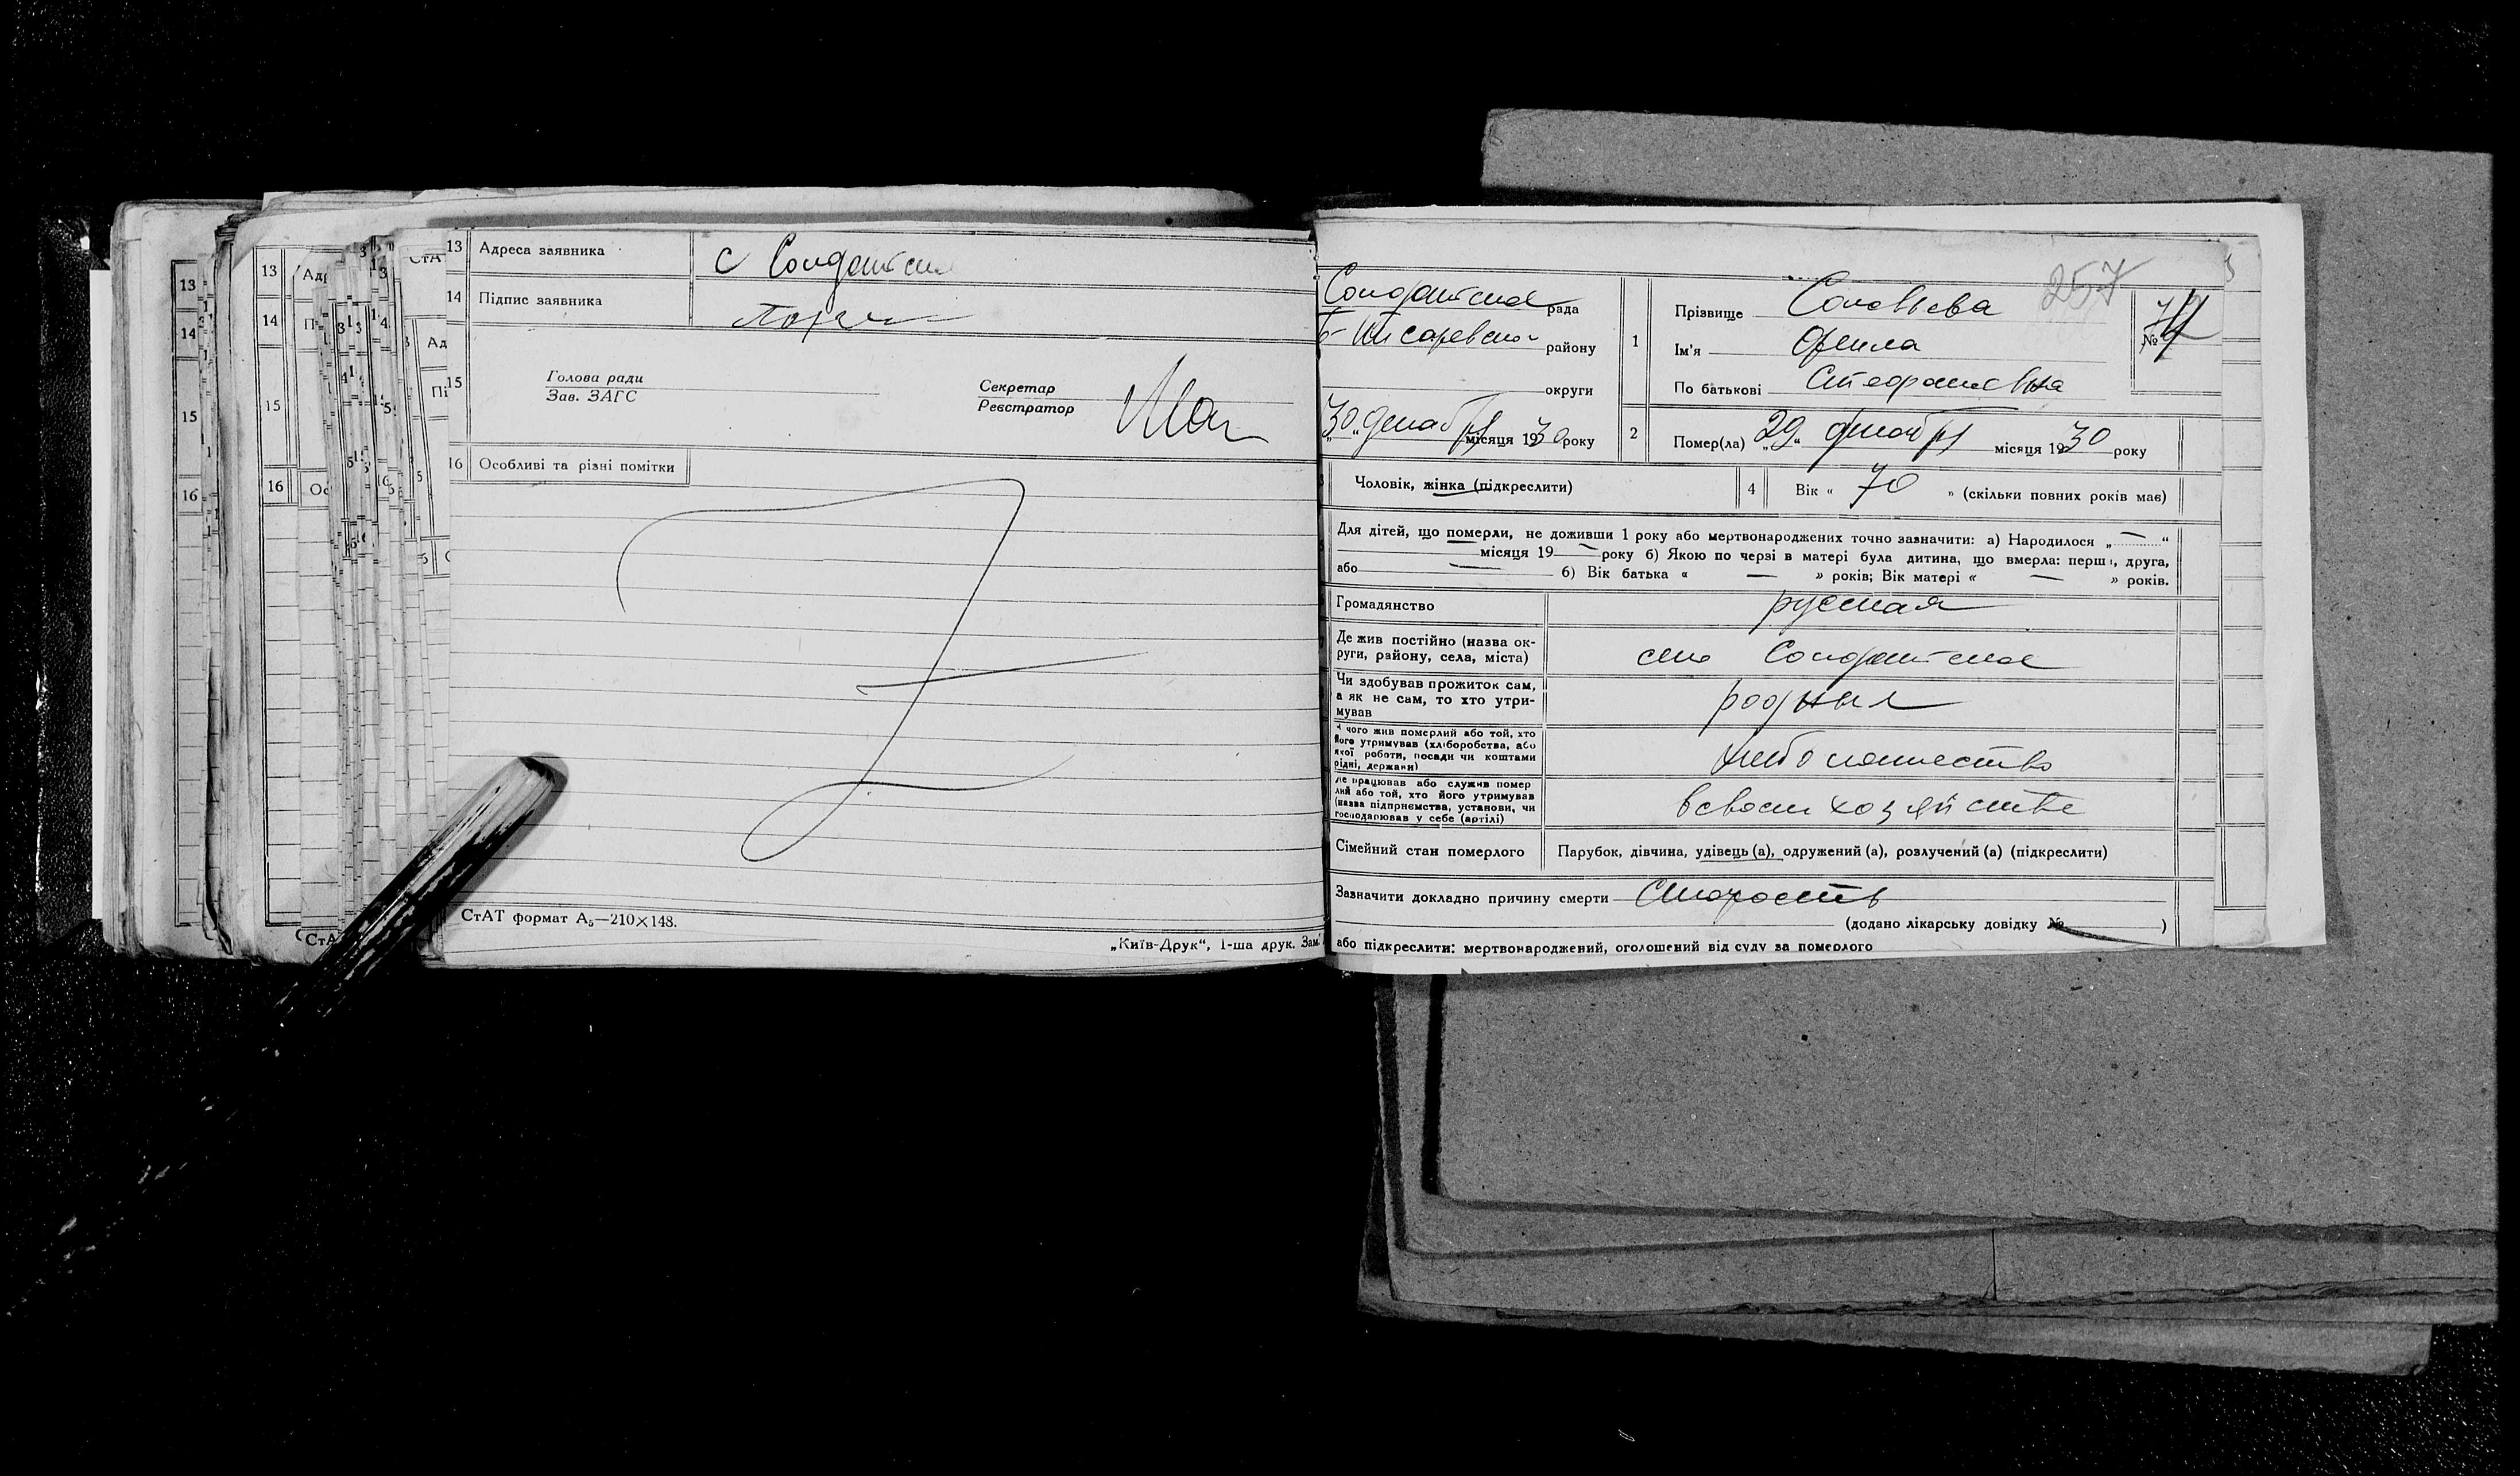 13 Адреса заявника с Солдатское
14 Підпис заявника
15 Голова ради
Зав. ЗАГС
Секретар
Реєстратор
16 Особливі та різні помітки
СтАТ формат А₅—210×148.
„Київ-Друк“, 1-ша друк. Зам.
257
Солдатское рада
б-Писаревского району
округи
„30“ декабря місяця 1930 року
1 Прізвище Соловьева
Ім'я
По батькові Стефановна
№
2 Помер(ла) „29“ декабря місяця 1930 року
Чоловік, жінка (підкреслити)
4 Вік « 70 » (скільки повних років має)
Для дітей, що померли, не доживши 1 року або мертвонароджених точно зазначити: а) Народилося „—“
місяця 19—року б) Якою по черзі в матері була дитина, що вмерла: перша, друга,
або — б) Вік батька « — » років; Вік матері « — » років.
Громадянство русская
Де жив постійно (назва ок-
руги, району, села, міста) село Солдатское
Чи здобував прожиток сам,
а як не сам, то хто утри-
мував родные
З чого жив померлий або той, хто
його утримував (хліборобства, або
якої роботи, посади чи коштами
рідні, держави) хлебопашество
Де працював або служив помер
лий або той, хто його утримував
(назва підприємства, установи, чи
господарював у себе (артілі) в своем хозяйстве
Сімейний стан померлого Парубок, дівчина, удівець (а), одружений (а), розлучений (а) (підкреслити)
Зазначити докладно причину смерти Старость
(додано лікарську довідку № )
або підкреслити: мертвонароджений, оголошений від суду за померлого